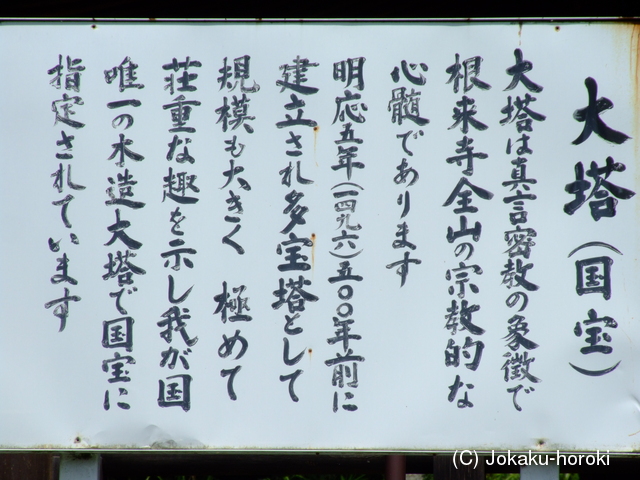 大塔(国宝)
大塔は真言密教の象徴で
根来寺全山の宗教的な
心髄であります
明応五年(一四九六)五〇〇年前に
建立され多宝塔として
規模も大きく 極めて
荘重な趣を示し我が国
唯一の木造大塔で国宝に
指定されています
(C) Jokaku-horoki